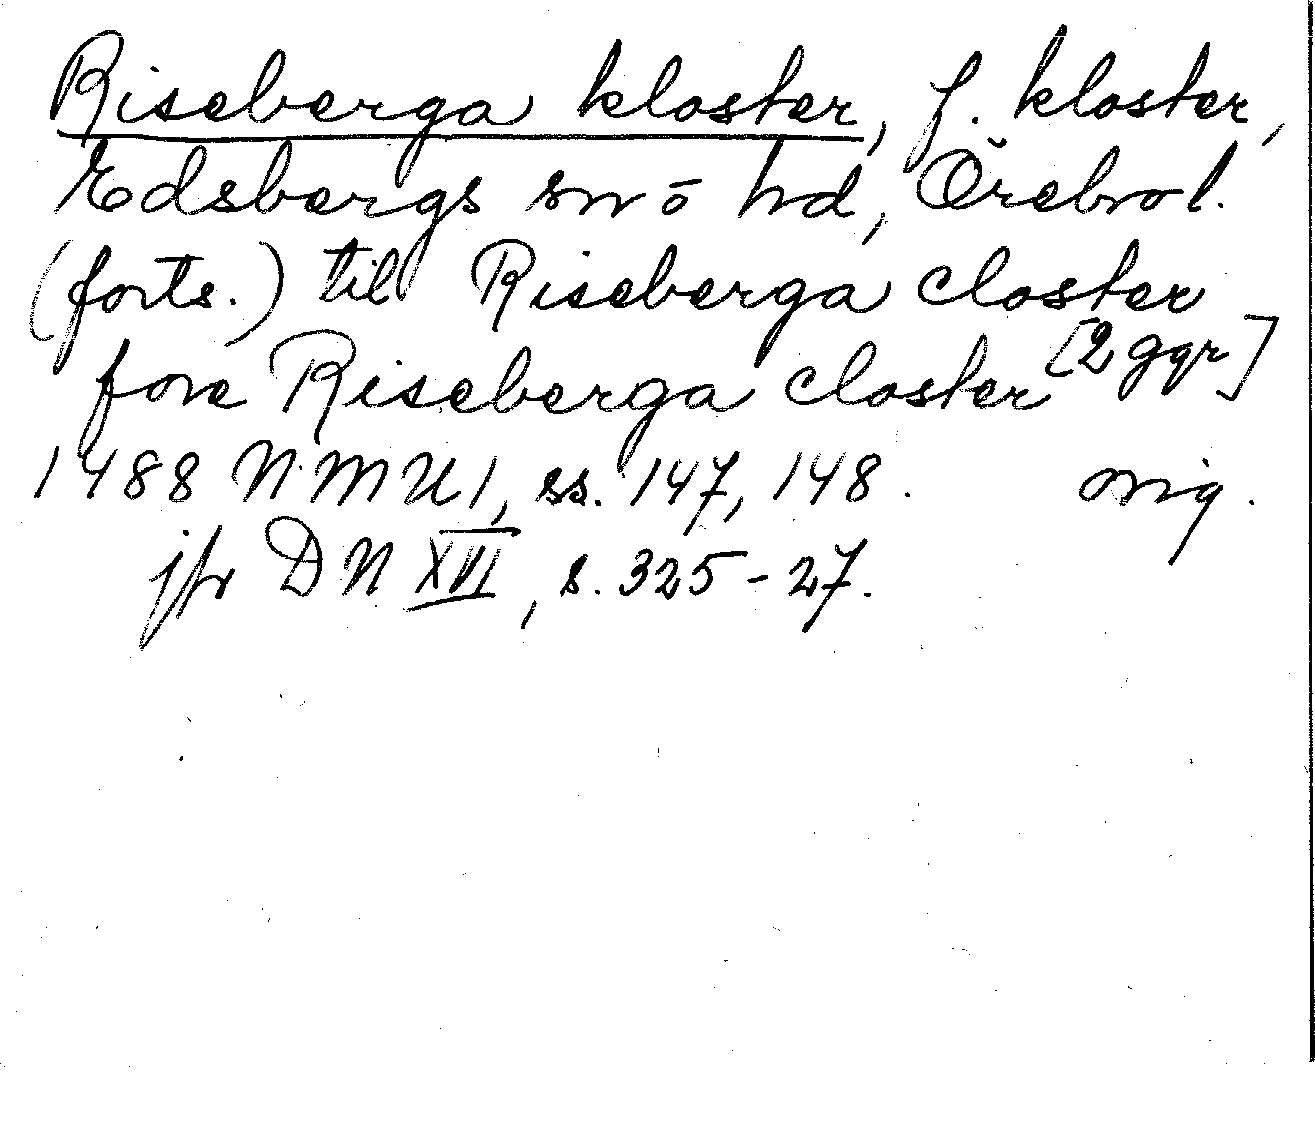 Riseberga kloster, f. kloster,
Edsbergs sn ō hd, Örebro l.
(forts.) til Riseberga closter
fore Riseberga closter [2 ggr]
1488 NMU 1, ss. 147, 148. orig.
jfr DN XVI, s. 325-27.